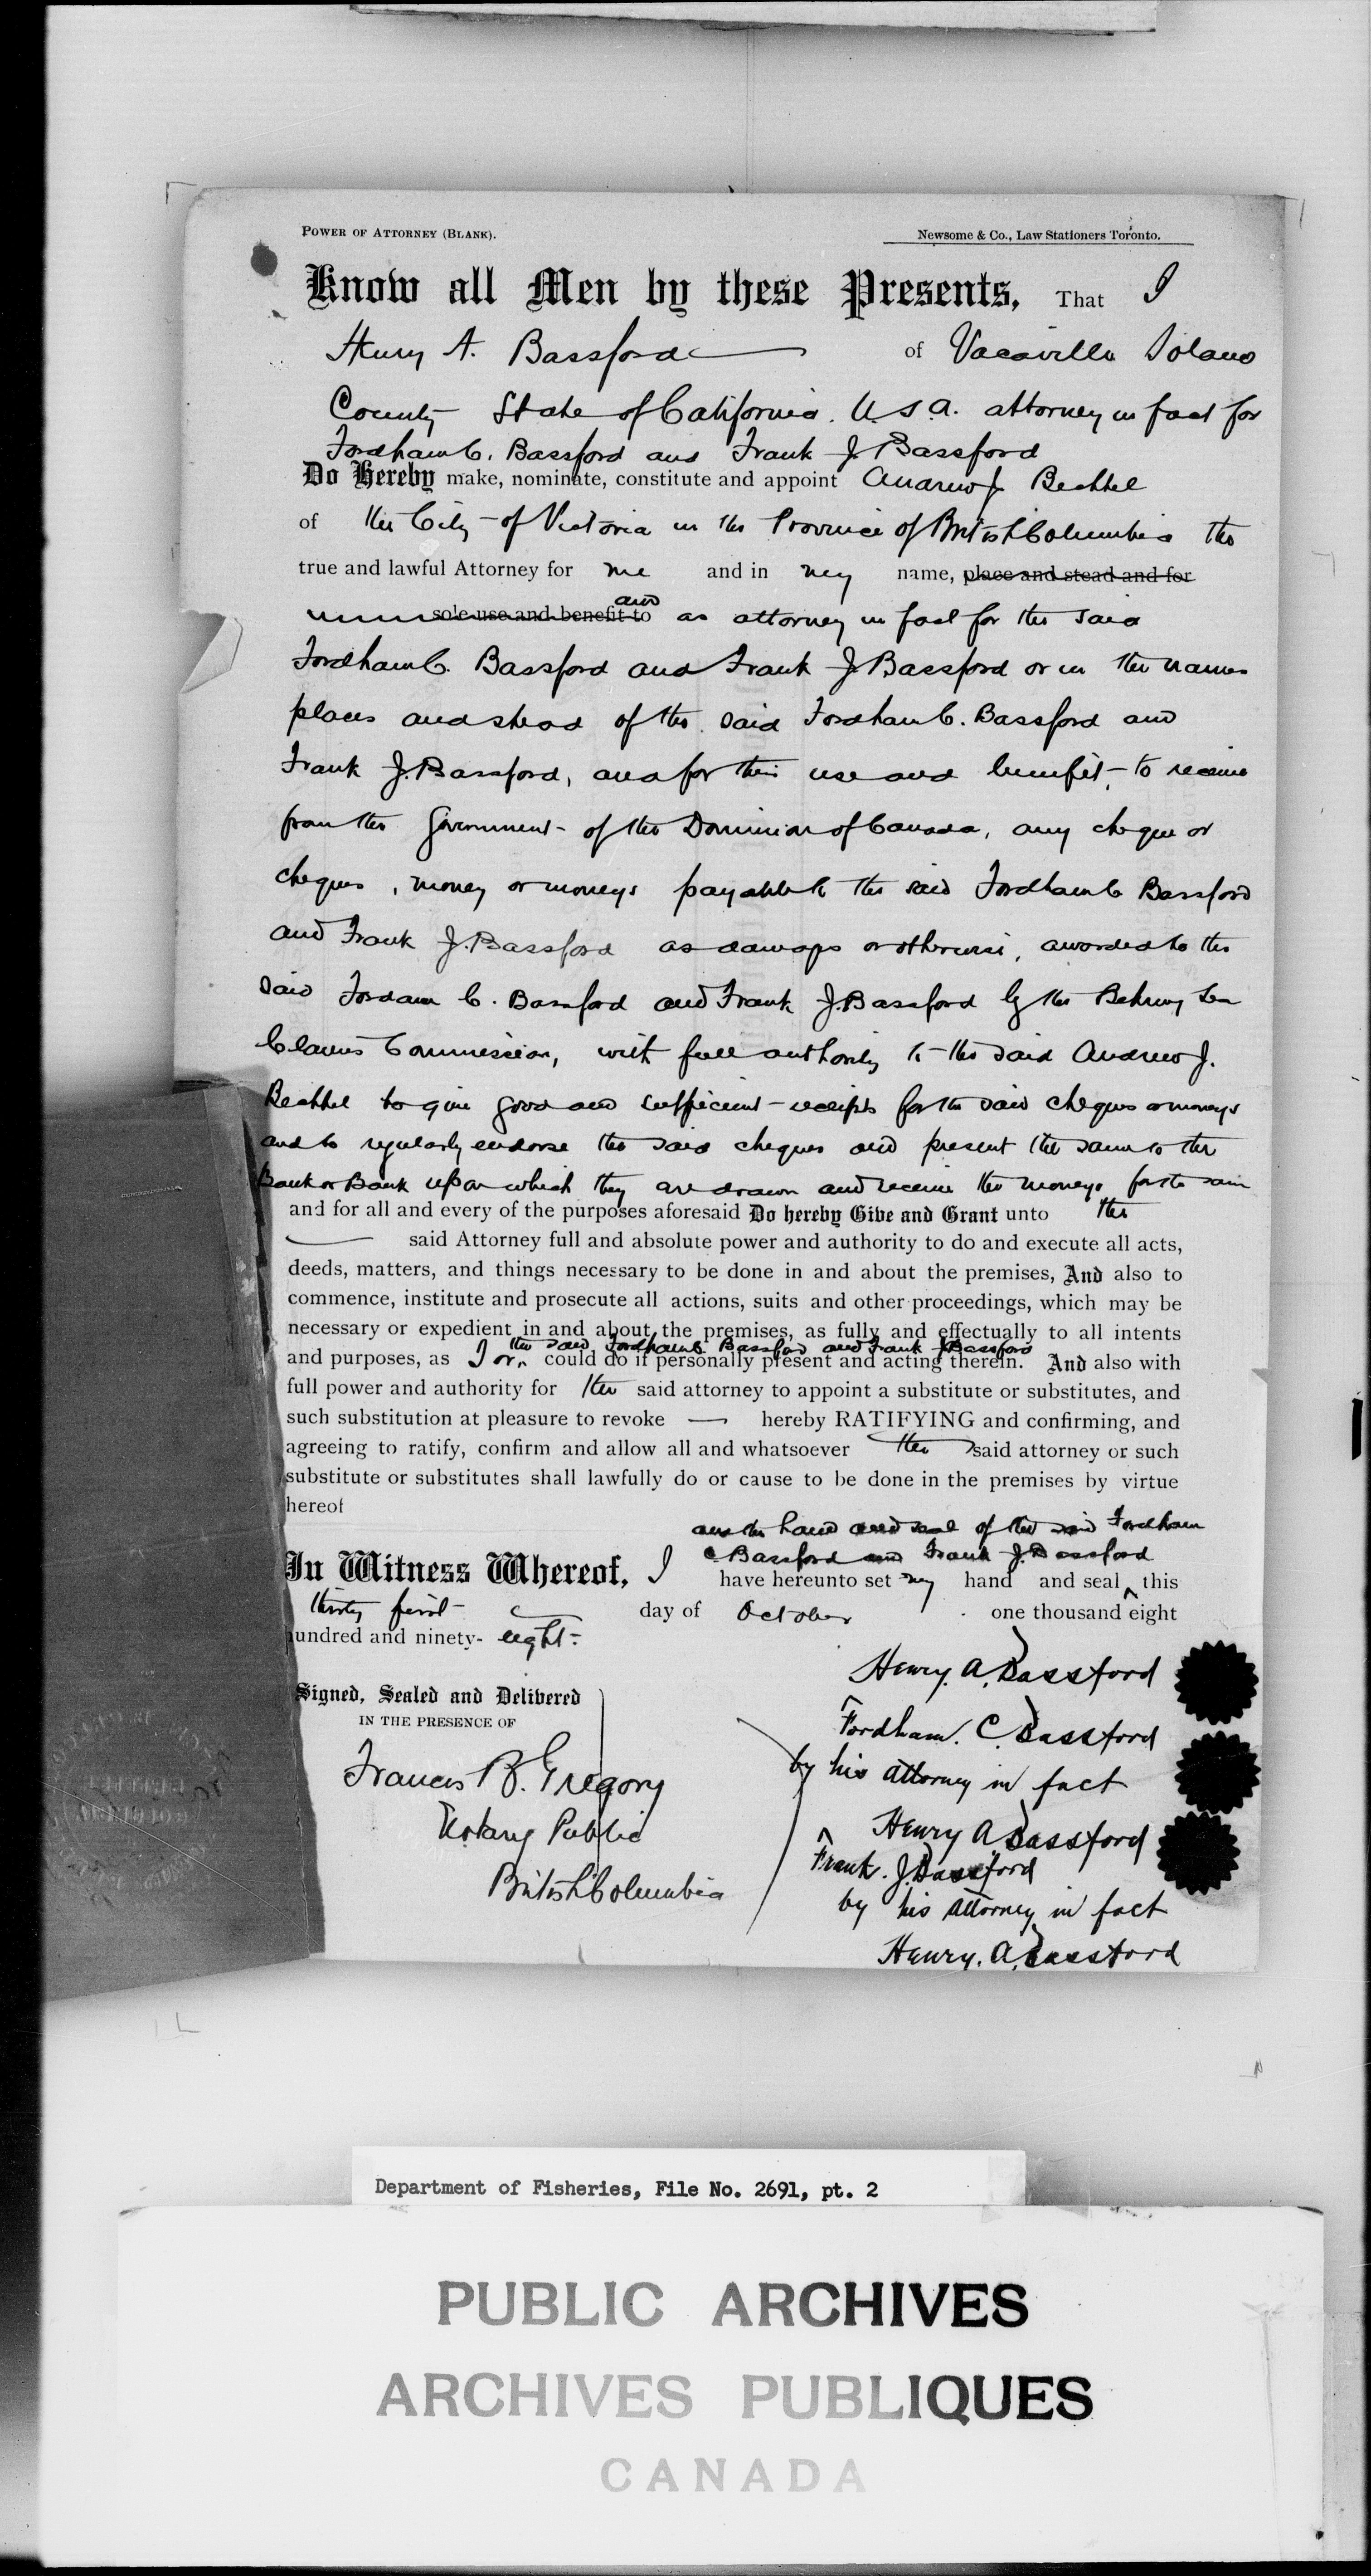 POWER OF ATTORNEY (BLANK).
Newsome & Co., Law Stationers Toronto.
Know all Men by these Presents, That I
Henry A. Bassford of Vacaville Solano
County State of California. U.S.A. attorney in fact for
Fordham C. Bassford and Frank J Bassford
Do Hereby make, nominate, constitute and appoint Andrew J. Bechtel
of the City of Victoria in the Province of British Columbia the
true and lawful Attorney for me and in my name, place and stead and for
sole use and benefit to and as attorney in fact for the said
Fordham C. Bassford and Frank J Bassford or in the names
places and stead of the said Fordham C. Bassford and
Frank J. Bassford, and for their use and benefit, to receive
from the Government of the Dominion of Canada, any cheque or
cheques, money or moneys payable to the said Fordham C Bassford
and Frank J. Bassford as damages or otherwise, awarded to the
said Fordam C. Bassford and Frank J. Bassford by the Behring Sea
Claims Commission, with full authority to the said Andrew J.
Bechtel to give good and sufficient receipts for the said cheques or moneys
and to regularly endorse the said cheques and present the same to the
Bank or Bank upon which they are drawn and receive the moneys for the same
and for all and every of the purposes aforesaid Do hereby Give and Grant unto the
said Attorney full and absolute power and authority to do and execute all acts,
deeds, matters, and things necessary to be done in and about the premises, And also to
commence, institute and prosecute all actions, suits and other proceedings, which may be
necessary or expedient in and about the premises, as fully and effectually to all intents
the said Fordham C Bassford and Frank J Bassford
and purposes, as I or ^ could do if personally present and acting therein. And also with
full power and authority for the said attorney to appoint a substitute or substitutes, and
such substitution at pleasure to revoke — hereby RATIFYING and confirming, and
agreeing to ratify, confirm and allow all and whatsoever the said attorney or such
substitute or substitutes shall lawfully do or cause to be done in the premises by virtue
hereof
and the hand and seal of the said Fordham
C Bassford and Frank J. Bassford
In Witness Whereof, I have hereunto set my hand and seal ^ this
thirty first day of October one thousand eight
hundred and ninety- eight.
Signed, Sealed and Delivered
IN THE PRESENCE OF
Francis B. Gregory
Notary Public
British Columbia
Henry. A. Bassford
Fordham. C. Bassford
by his attorney in fact
Henry A Bassford
Frank. J. Bassford
by his attorney in fact
Henry. A. Bassford
Department of Fisheries, File No. 2691, pt. 2
PUBLIC ARCHIVES
ARCHIVES PUBLIQUES
CANADA